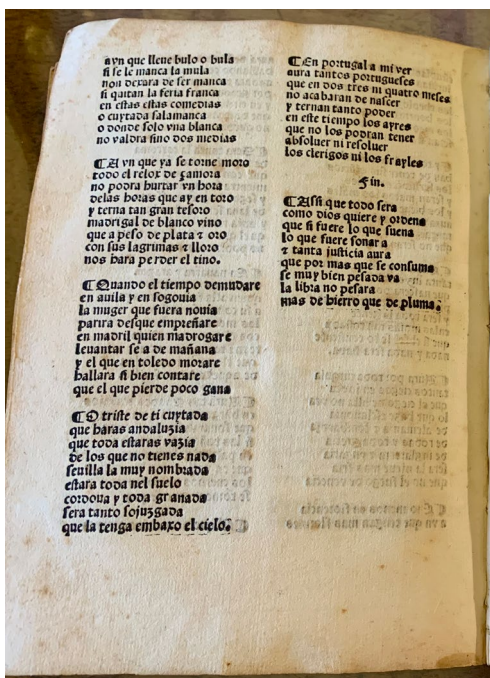 avn que lleue bulo o bula
si se le manca la mula
non dexara de ser manca
si quitan la feria franca
en estas estas comedias
o cuytada salamanca
o donde solo vna blanca
no valdra sino dos medias
¶ A vn que ya se torne moro
todo el relox de çamora
no podra hurtar vn hora
delas horas que ay en toro
y terna tan gran tesoro
madrigal de blanco vino
que a peso de plata ⁊ oro
con sus lagrimas ⁊ lloro
nos hara perder el tino.
¶ Quando el tiempo demudare
en auila y en segouia
la muger que fuera nouia
parira desque empreñare
en madrid quien madrogare
leuantar se a de mañana
y el que en toledo morare
hallara si bien contare
que el que pierde poco gana
¶ O triste de ti cuytada
que haras andaluzia
que toda estaras vazia
de los que no tienes nada
seuilla la muy nombrada
estara toda nel suelo
cordoua y toda granada
sera tanto sojuzgada
que la tenga embaxo el cielo.
¶ En portugal a mi ver
aura tantos portugueses
que en dos tres ni quatro meses
no acabaran de nascer
y ternan tanto poder
en este tiempo los ayres
que no los podran tener
absoluer ni resoluer
los clerigos ni los frayles
Fin.
¶ Assi que todo sera
como dios quiere y ordena
que si fuere lo que suena
lo que fuere sonara
⁊ tanta justicia aura
que por mas que se consuma
se muy bien pesada va
la libra no pesara
mas de hierro que de pluma.